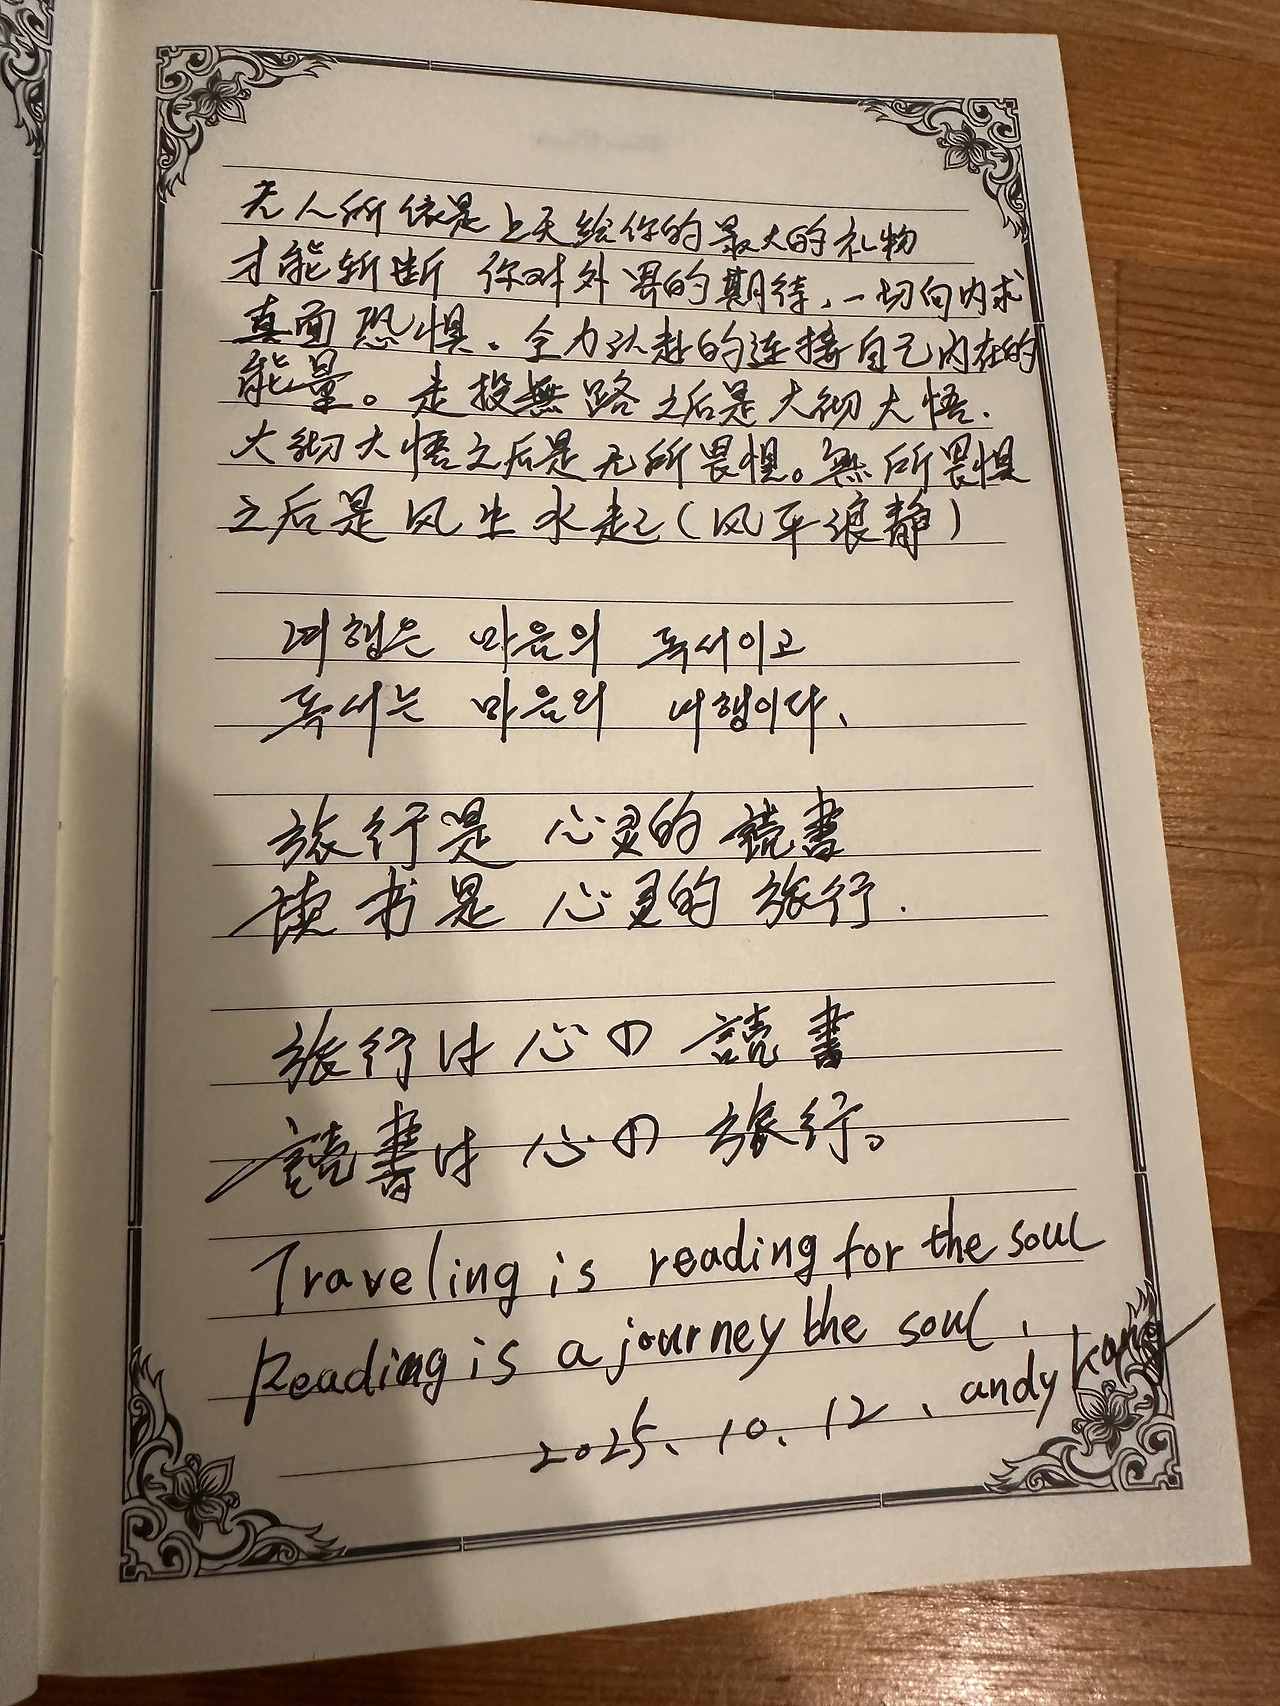 无人所依是上天给你的最大的礼物
才能斩断 你对外界的期待、一切向内求
真面恐惧。全力以赴的连接自己内在的
能量。走投無路之后是大彻大悟.
大彻大悟之后是无所畏惧。無所畏惧
之后是风生水起(风平浪静)
여행은 마음의 독서이고
독서는 마음의 여행이다.
旅行是 心灵的 読書
读书是 心灵的 旅行.
旅行は 心の 読書
読書は 心の 旅行。
Traveling is reading for the soul
Reading is a journey the soul.
2025. 10. 12. andy kang